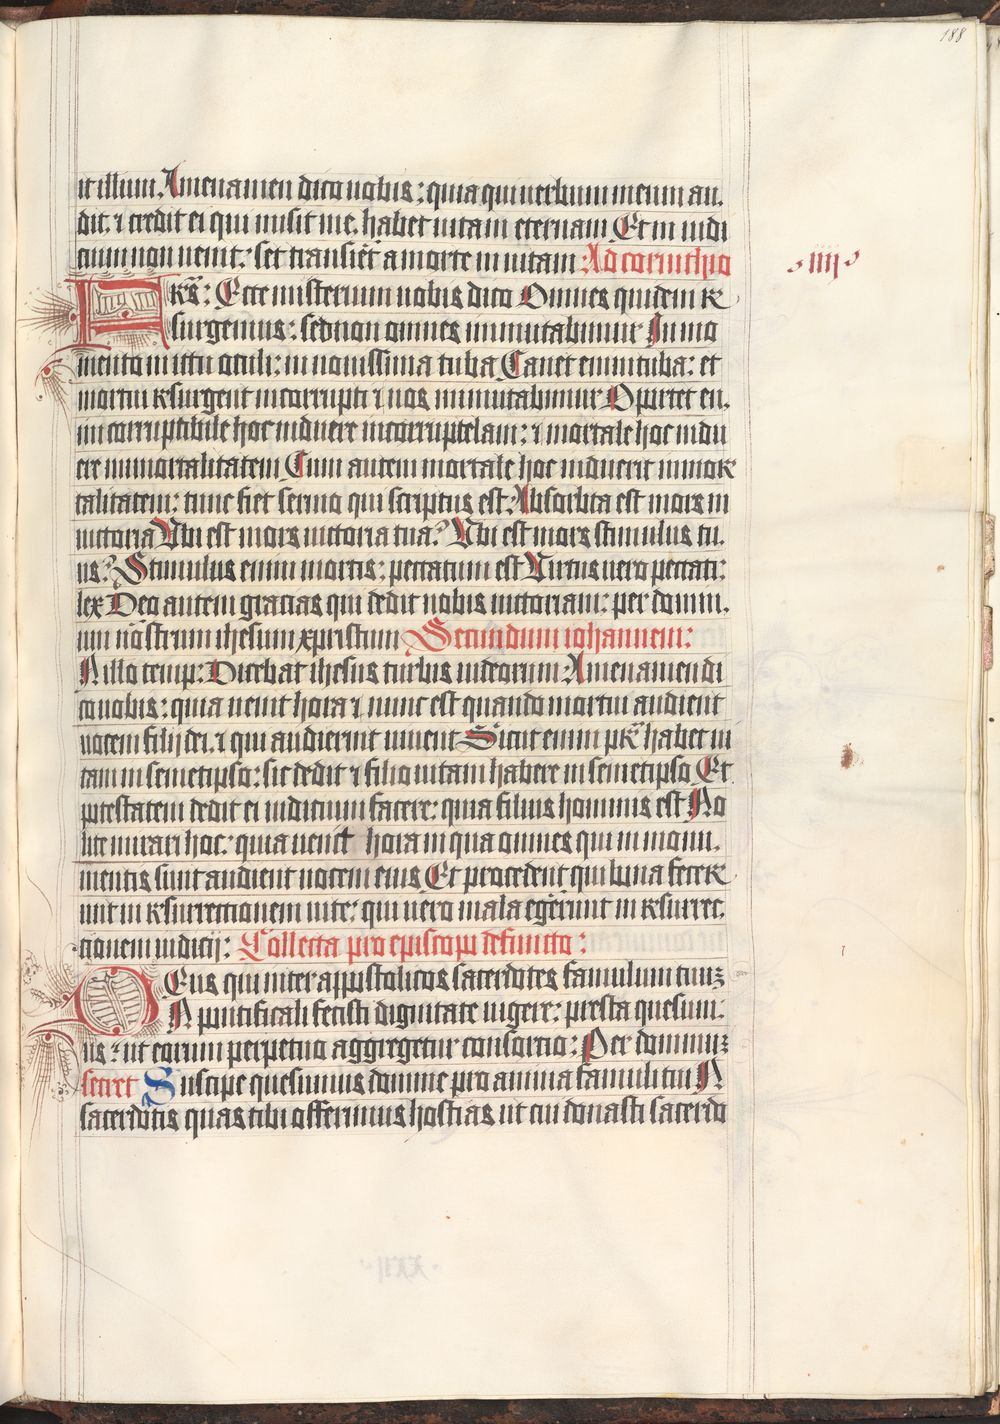 188
it illum. Amen amen dico uobis: quia qui uerbum meum au-
dit. ⁊ credit ei qui misit me. habet uitam eternam Et in iudi
cium non uenit: set transiet a morte in uitam Ad corinthio
iiij
FRs: Ecce misterium uobis dico Omnes quidem re
surgemus: sed non omnes inmutabimur In mo
mento in ictu oculi: in nouissima tuba Canet enim tuba: et
mortui resurgent incorrupti ⁊ nos inmutabimur Oportet en-
im corruptibile hoc induere incorruptelam: ⁊ mortale hoc indu
ere inmortalitatem Cum autem mortale hoc induerit inmor
talitatem: tunc fiet sermo qui scriptus est. Absorbta est mors in
uictoria Vbi est mors uictoria tua? Vbi est mors stimulus tu-
us? Stimulus enim mortis: peccatum est Virtus uero peccati:
lex Deo autem gracias qui dedit nobis uictoriam: per domin-
um nostrum ihesum xpristum Secundum iohannem:
N illo temp: Dicebat ihesus turbis iudeorum. Amen amen di
co uobis: quia uenit hora ⁊ nunc est quando mortui audient
uocem filij dei. ⁊ qui audierint uiuent Sicut enim pr̄ habet ui
tam in semetipso: sic dedit ⁊ filio uitam habere in semetipso Et
potestatem dedit ei iudicium facere: quia filius hominis est No
lite mirari hoc: quia uenit hora in qua omnes qui in monu-
mentis sunt audient uocem eius Et procedent qui bona fecer
unt in resurrectionem uite: qui uero mala egerunt in resurrec-
tionem iudicij: Collecta pro episcopo defuncto:
DEus qui inter appostolicos sacerdotes famulum tuuȝ
N pontificali fecisti dignitate uigere: presta quesum-
us: ut eorum perpetuo aggregetur consorcio: Per dominuȝ
secret Suscipe quesumus domine pro anima famuli tui N
sacerdotis quas tibi offerimus hostias ut cui donasti sacerdo